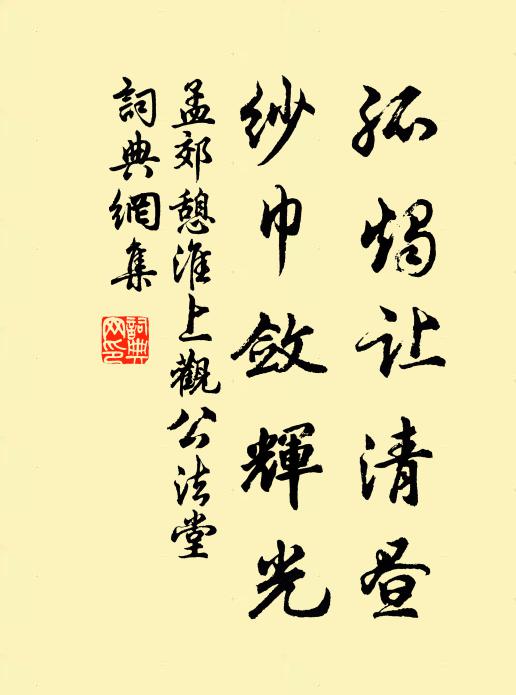 孤烛让清昼
纱巾敛輝光
孟郊憩淮上觀公法堂
詞典網集
詞典网印